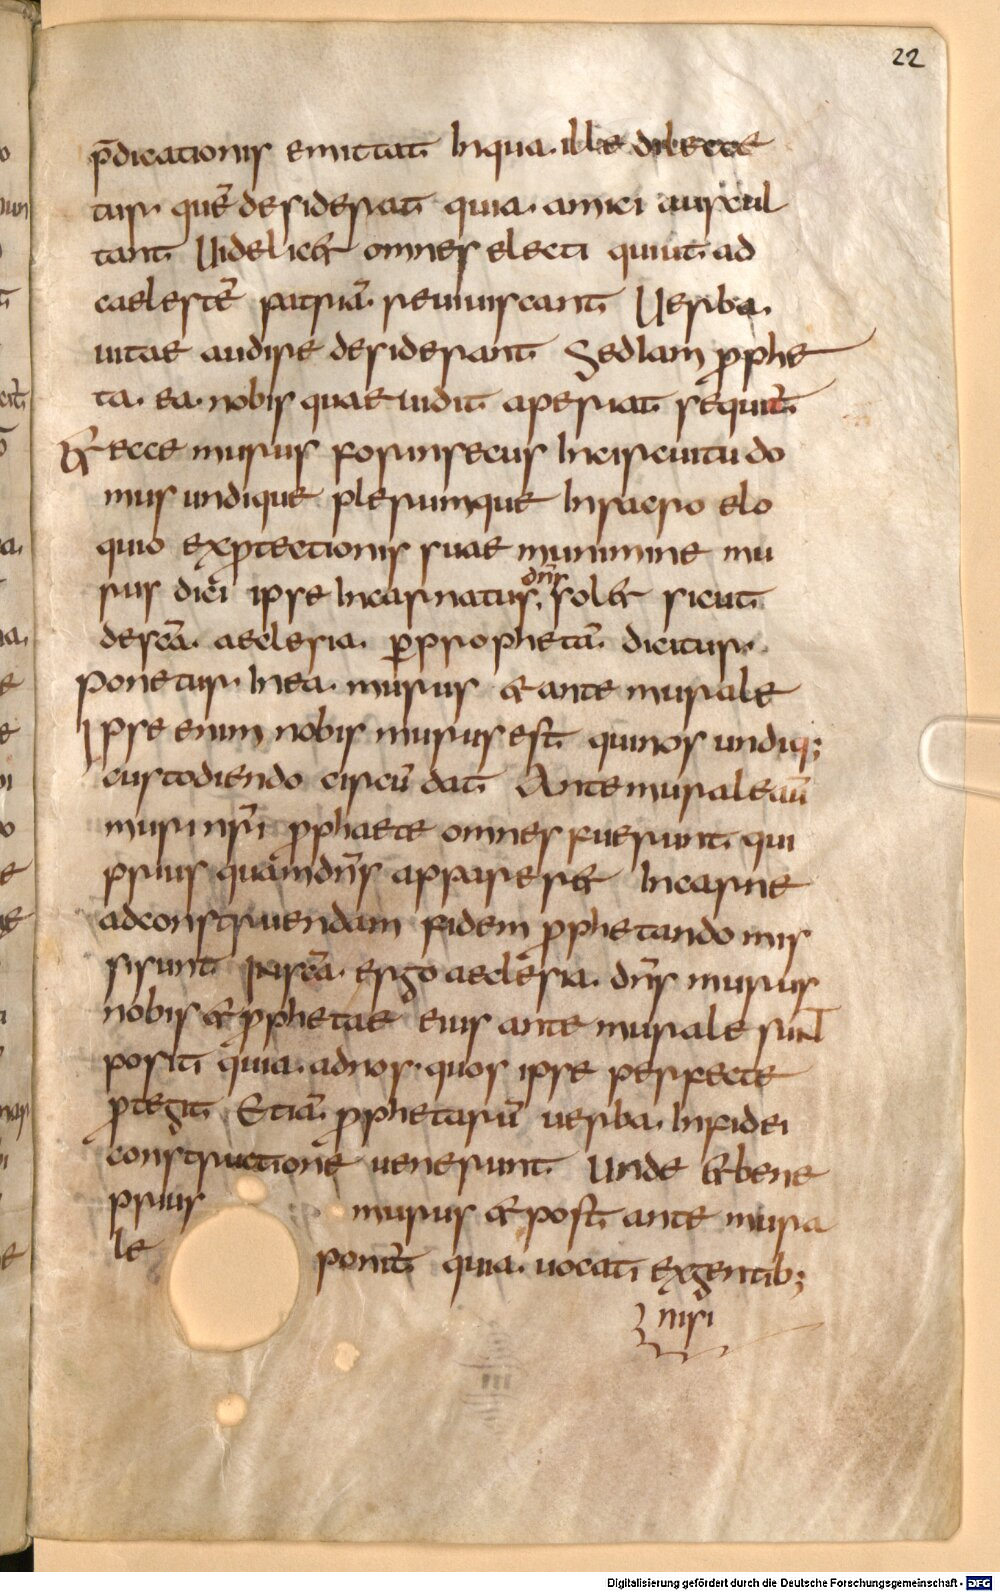 22
p̄dicationis emittat Inqua. ille dilecte
tur. quē desiderat quia. amici auscul
tant Uidelicet omnes electi quiut ad
caelestē patriā. reuiuiscant Uerba.
uitae audire desiderant Sed Iam pphe
ta. ea. nobis quae uidit aperiat sequit̄
Et ecce murus forinsecus Incircuitu do
mus undique plerumque Insacro elo
quio exprotectionis suae munimine mu
dn̄s
rus dici ipse Incarnatus. solet sicut
descā. aeclesia. pprophetā. dicitur.
Ponetur. Inea. murus et ante murale
Ipse enim nobis murus est quinos undiq;
custodiendo circū dat Antemurale aū
muri nr̄i pphaete omnes fuerunt qui
prius quamdn̄s appareret Incarne
adconstruendam fidem pphetando mis
si sunt Inscā. ergo aeclesia. dn̄s murus
nobis et pphetae eius ante murale sunt
positi quia. adnos. quos ipse perfecte
ptegit Etiā pphetarū uerba. Infidei
constructione uenerunt Unde et bene
prius murus et post ante mura
le ponit̄ quia. uocati exgentib;
nisi
Digitalisierung gefördert durch die Deutsche Forschungsgemeinschaft - DFG